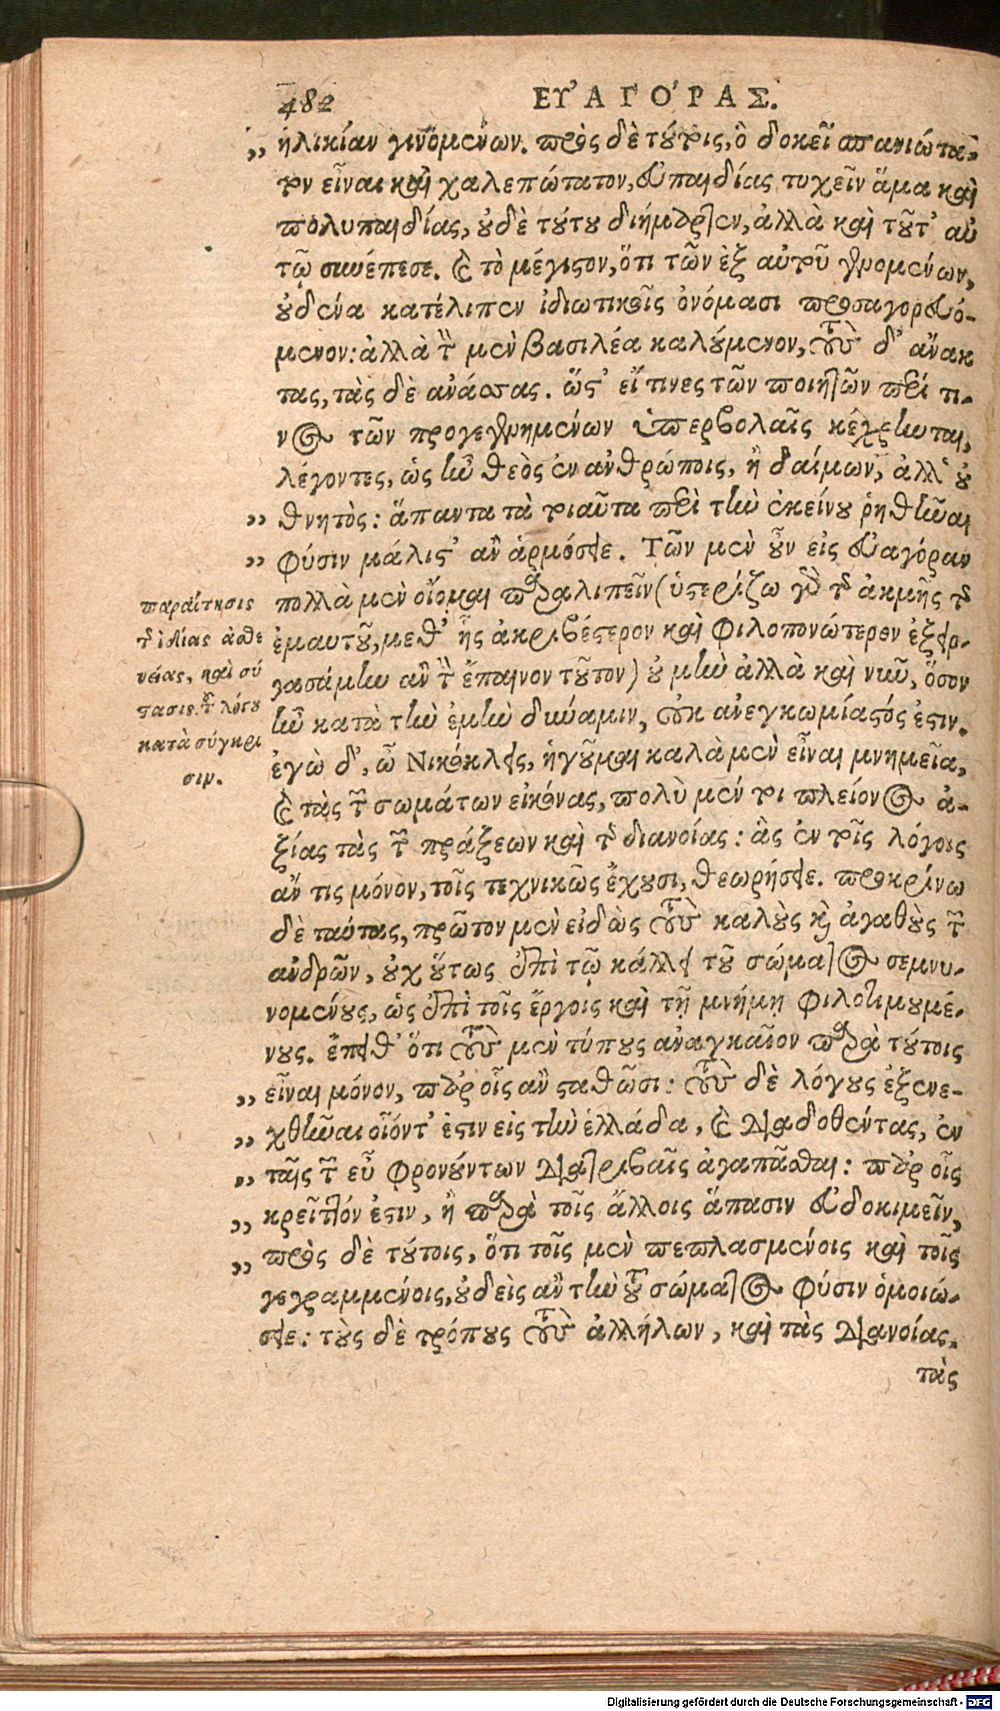 482
ΕΥ᾽ΑΓΟ´ΡΑΣ.
ἡλικίαν γινομένων. πρὸς δὲ τούτοις, ὃ δοκεῖ σπανιώτα-
τον εἶναι καὶ χαλεπώτατον, εὐπαιδίας τυχεῖν ἅμα καὶ
πολυπαιδίας, οὐδὲ τούτου διήμαρτεν, ἀλλὰ καὶ τοῦτ᾽ αὐ
τῷ συνέπεσε. καὶ τὸ μέγιστον, ὅτι τῶν ἐξ αὐτοῦ γενομένων,
οὐδένα κατέλιπεν ἰδιωτικοῖς ὀνόμασι προσαγορευό-
μενον: ἀλλὰ τὸν μὲν βασιλέα καλούμενον, τοὺς δ᾽ ἄνακ
τας, τὰς δὲ ἀνάσσας. ὥστ᾽ εἴ τινες τῶν ποιητῶν περί τι-
νος τῶν προγεγενημένων ὑπερβολαῖς κέχρηνται,
λέγοντες, ὡς ἦν θεὸς ἐν ἀνθρώποις, ἢ δαίμων, ἀλλ᾽ οὐ
„ θνητὸς: ἅπαντα τὰ τοιαῦτα περὶ τὴν ἐκείνου ῥηθῆναι
„ φύσιν μάλιστ᾽ ἂν ἁρμόσειε. Τῶν μὲν οὖν εἰς Εὐαγόραν
πολλὰ μὲν οἴομαι παραλιπεῖν (ὑστερίζω γὰρ τῆς ἀκμῆς τῆς
ἐμαυτοῦ, μεθ᾽ ἧς ἀκριβέστερον καὶ φιλοπονώτερον ἐξειρ-
γασάμην ἂν τὸν ἔπαινον τοῦτον) οὐ μὴν ἀλλὰ καὶ νῦν, ὅσον
ἦν κατὰ τὴν ἐμὴν δύναμιν, οὐκ ἀνεγκωμίαστός ἐστιν.
ἐγὼ δ᾽, ὦ Νικόκλεις, ἡγοῦμαι καλὰ μὲν εἶναι μνημεῖα,
καὶ τὰς τῶν σωμάτων εἰκόνας, πολὺ μέν τοι πλείονος ἀ-
ξίας τὰς τῶν πράξεων καὶ τῆς διανοίας: ἃς ἐν τοῖς λόγοις
ἄν τις μόνον, τοῖς τεχνικῶς ἔχουσι, θεωρήσειε. προκρίνω
δὲ ταύτας, πρῶτον μὲν εἰδὼς τοὺς καλοὺς κἀγαθοὺς τῶν
ἀνδρῶν, οὐχ οὕτως ἐπὶ τῷ κάλλει τοῦ σώματος σεμνυ-
νομένους, ὡς ἐπὶ τοῖς ἔργοις καὶ τῇ μνήμῃ φιλοτιμουμέ-
νους. ἔπειθ᾽ ὅτι τοὺς μὲν τύπους ἀναγκαῖον παρὰ τούτοις
„ εἶναι μόνον, παρ᾽ οἷς ἂν σταθῶσι: τοὺς δὲ λόγους ἐξενε-
„ χθῆναι οἷόντ᾽ ἐστιν εἰς τὴν ἑλλάδα, καὶ διαδοθέντας, ἐν
„ ταῖς τῶν εὖ φρονούντων διατριβαῖς ἀγαπᾶσθαι: παρ᾽ οἷς
„ κρεῖττόν ἐστιν, ἢ παρὰ τοῖς ἄλλοις ἅπασιν εὐδοκιμεῖν,
„ πρὸς δὲ τούτοις, ὅτι τοῖς μὲν πεπλασμένοις καὶ τοῖς
γεγραμμένοις, οὐδεὶς ἂν τὴν τοῦ σώματος φύσιν ὁμοιώ-
σειε: τοὺς δὲ τρόπους τοὺς ἀλλήλων, καὶ τὰς διανοίας,
τὰς
παραίτησις
τῆς ἰδίας ἀσθε
νείας, καὶ σύ
στασις τοῦ λόγου
κατὰ σύγκρι
σιν.
Digitalisierung gefördert durch die Deutsche Forschungsgemeinschaft - DFG